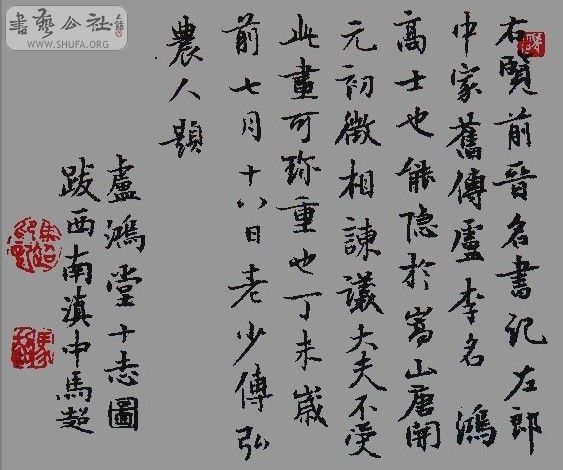 書藝公社
WWW.SHUFA.ORG
右覽前晉名書記左郎
中家舊傳盧李名鴻
高士也能隐於嵩山唐開
元初徵相諫議大夫不受
此畫可珎重也丁未歲
前七月十八日老少傅弘
農人題
盧鴻堂十志圖
跋西南滇中馬超